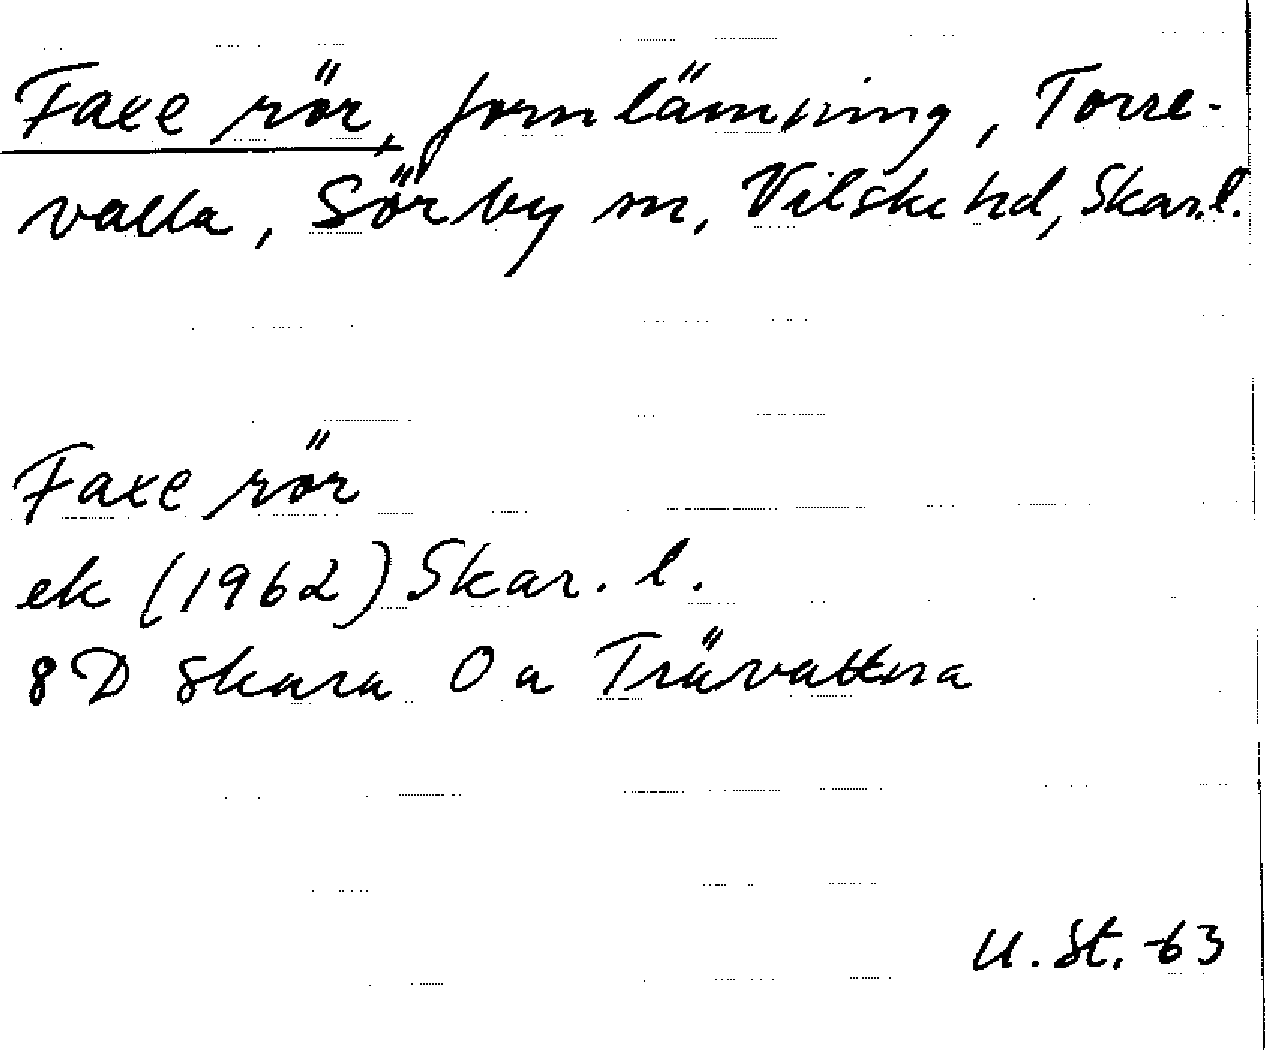 Faxe rör, fornlämning, Torre-
valla, Sörby sn, Vilske hd, Skar.l.
Faxe rör
ek (1962) Skar. l.
8D Skara 0a Trävattna
U. St. -63